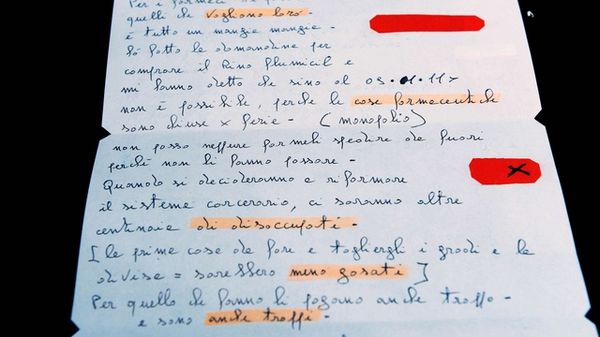 Per i farmaci
quelli che vogliono loro -
è tutto un mangia mangia -
Ho fatto la domandina per
comprare il Rino flumicil e
mi hanno detto che sino al
non è possibile, perché le case farmaceutiche
sono chiuse x ferie - (monopolio)
non posso neppure farmeli spedire da fuori
perché non li fanno passare -
Quando si decideranno a riformare
il sistema carcerario, ci saranno altre
centinaia di disoccupati -
[le prime cose da fare è togliergli i gradi e le
divise = sarebbero meno gasati]
Per quello che fanno li pagano anche troppo -
e sono anche troppi -